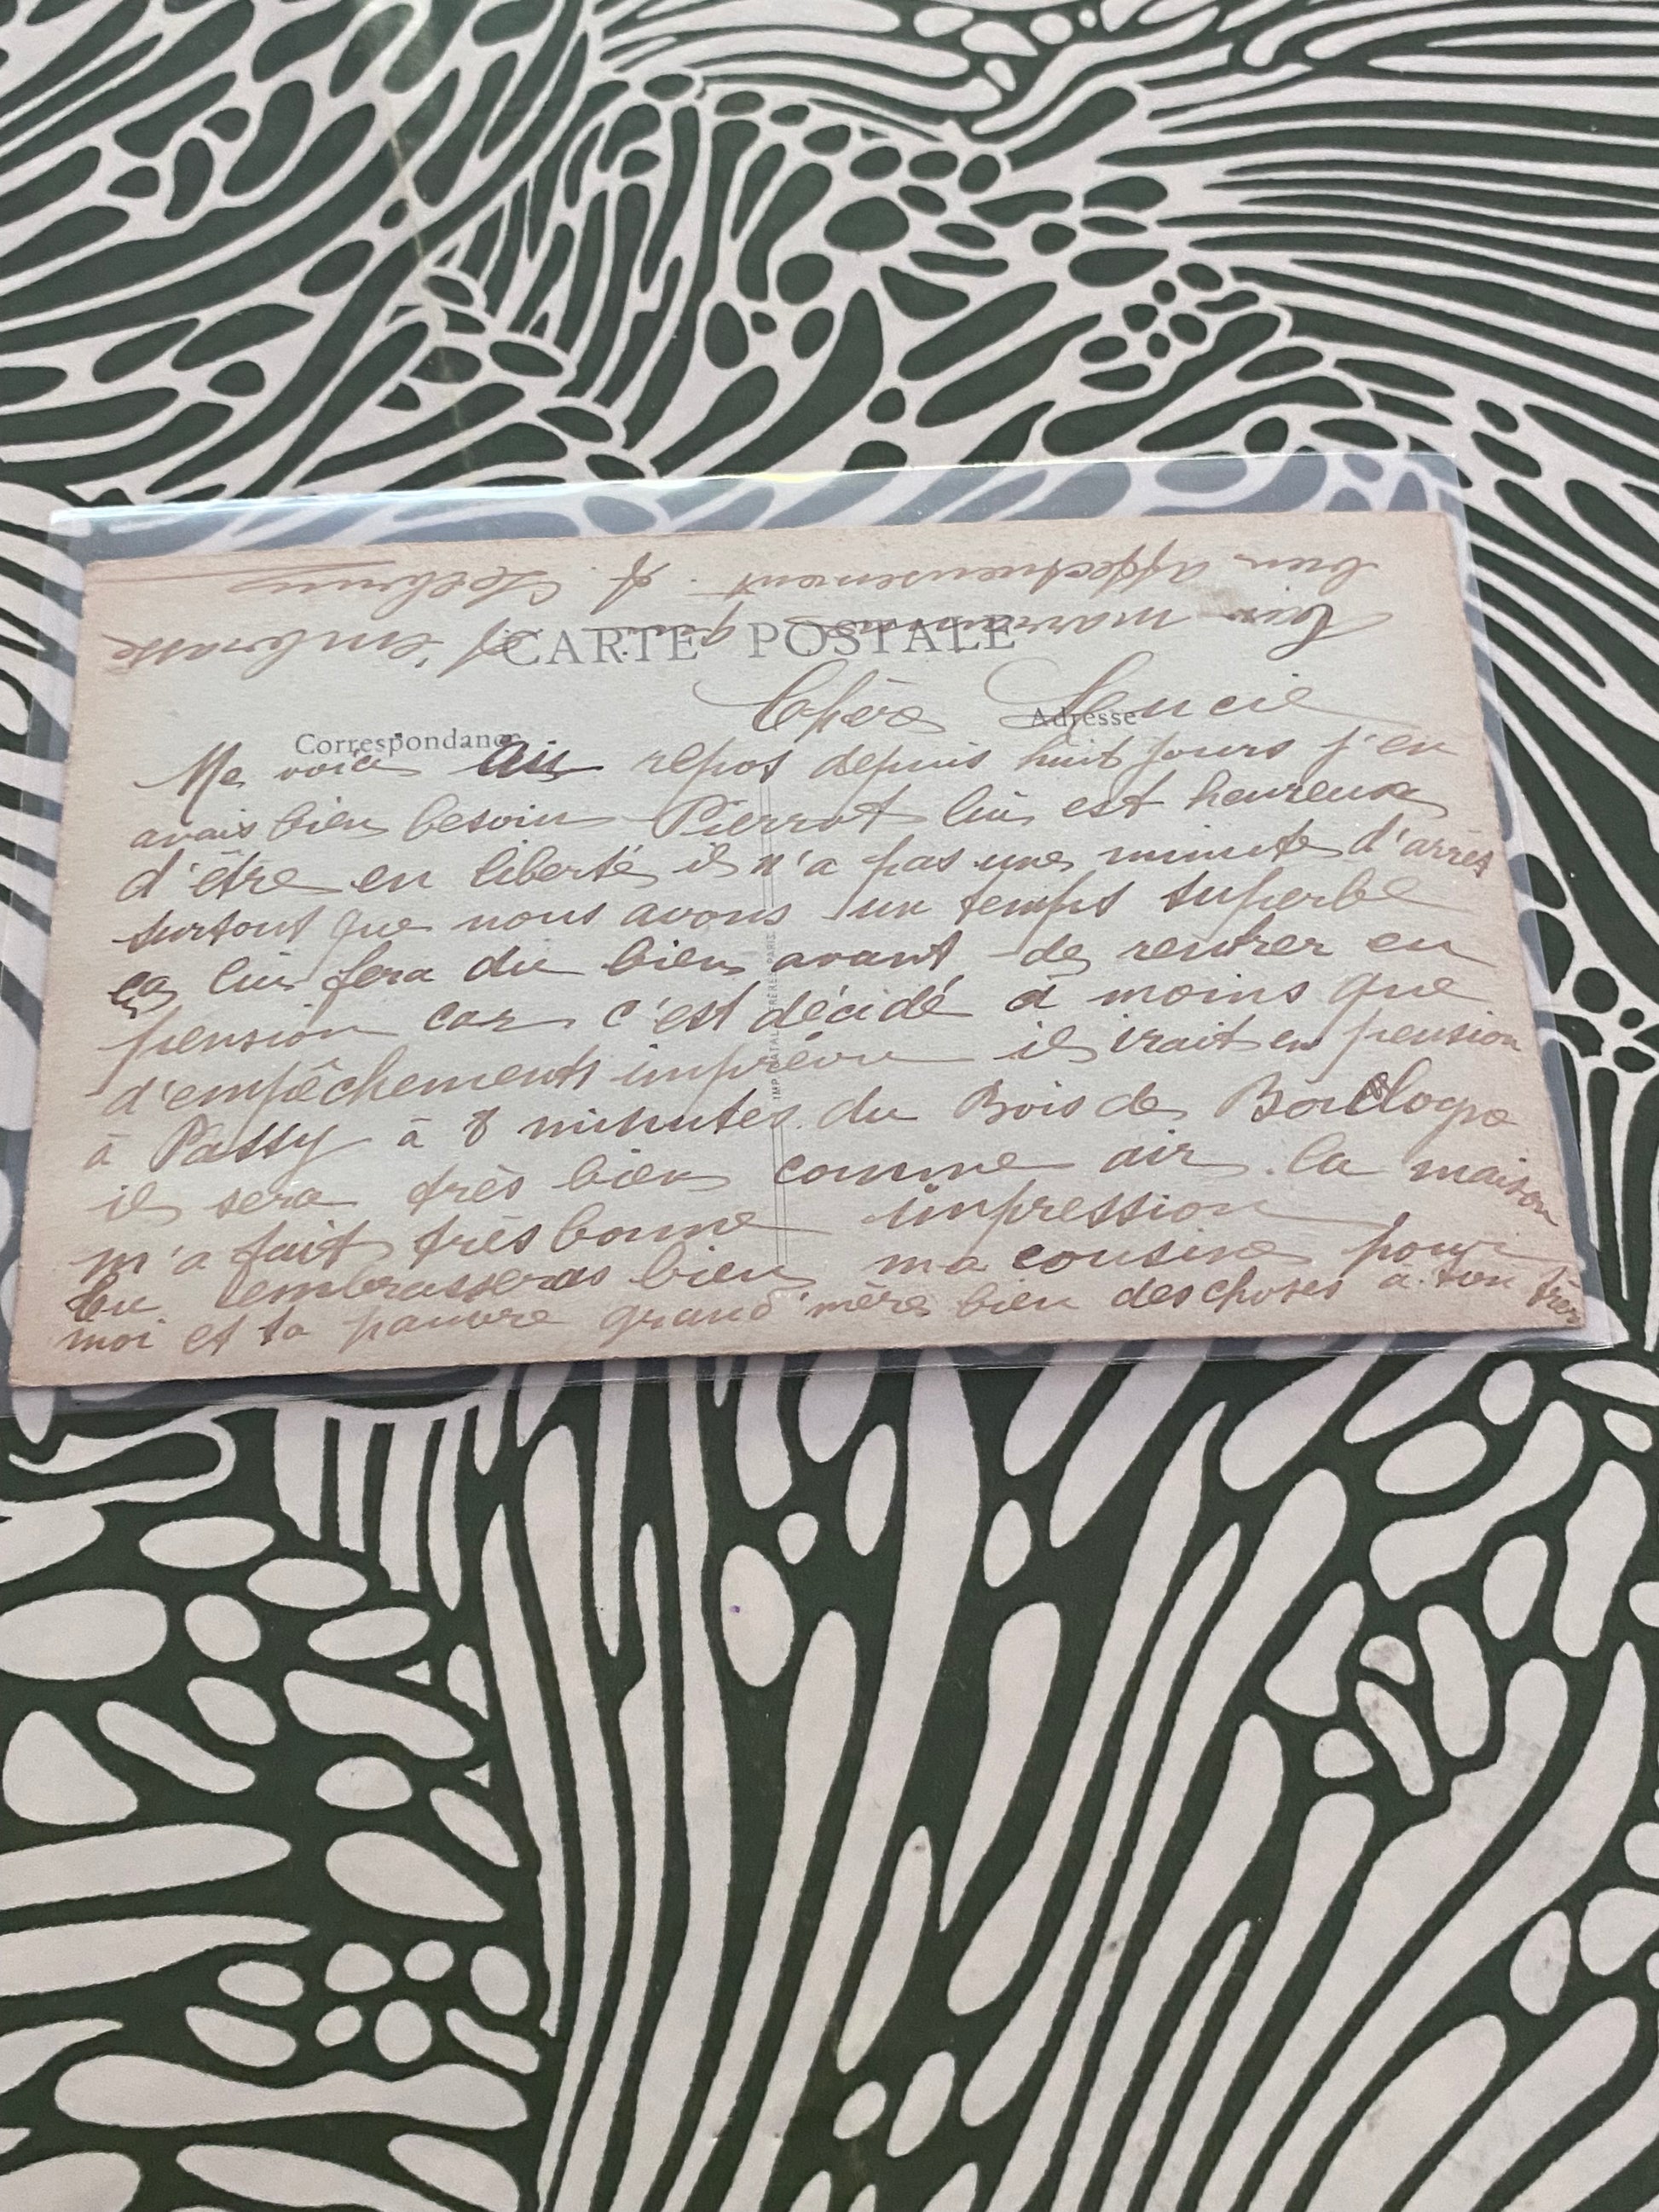 CARTE POSTALE
Correspondance
Adresse
Chère Lucie
Me voici au repos depuis huit jours j'en
avais bien besoin Pierrot lui est heureux
d'être en liberté il n'a pas une minute d'arrêt
surtout que nous avons un temps superbe
ça lui fera du bien avant de rentrer en
pension car c'est décidé à moins que
d'empêchements imprévu il irait en pension
à Passy à 8 minutes du Bois de Boulogne
il sera très bien comme air la maison
m'a fait très bonne impression
tu embrasseras bien ma cousine pour
moi et ta pauvre grand'mère bien des choses à ton frère
marraine qui t'embrasse
bien affectueusement